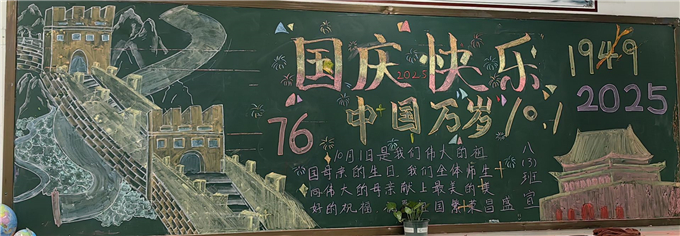 国庆快乐
2025
中国万岁 10.1
1949
2025
76
10月1日是我们伟大的祖
国母亲的生日,我们全体师生
向伟大的母亲献上最美的
好的祝福,国繁荣昌盛
八(3)班宣